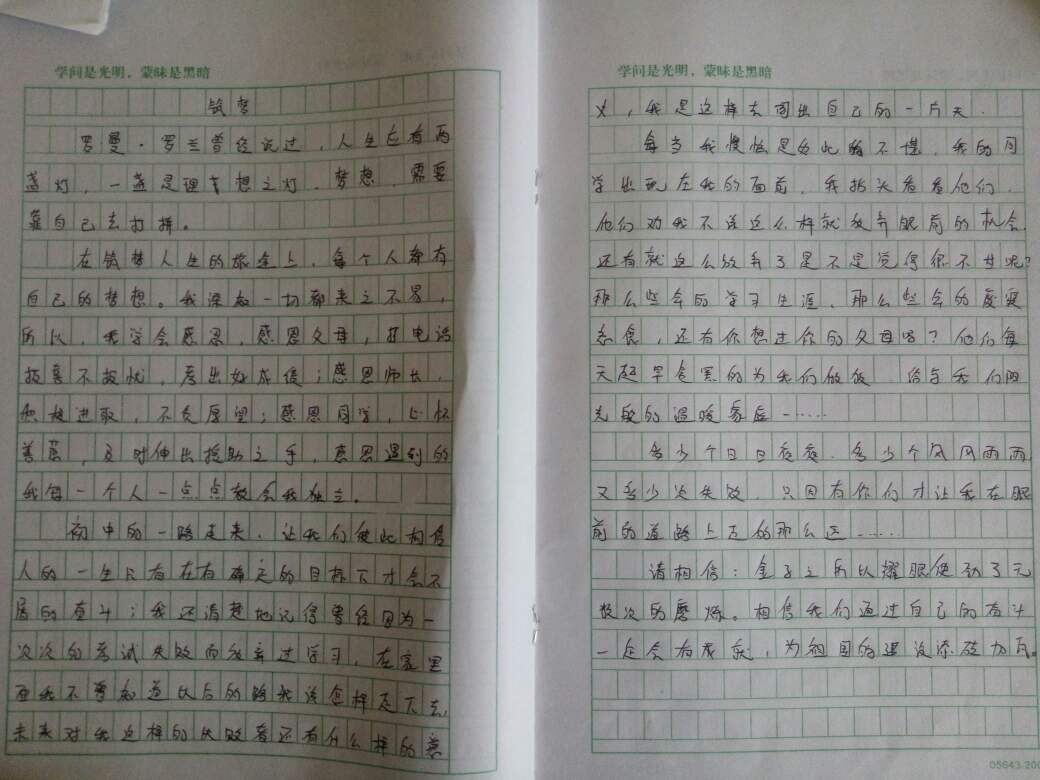 学问是光明，蒙昧是黑暗
筑梦
罗曼·罗兰曾经说过，人生应有两
盏灯，一盏是理想之灯，梦想，需要
靠自己去打拼。
在筑梦人生的旅途上，每个人都有
自己的梦想。我深知一切都来之不易，
所以，我学会感恩，感恩父母，打电话
报喜不报忧，考出好成绩；感恩师长，
积极进取，不负厚望；感恩同学，心怀
善意，及时伸出援助之手，感恩遇到的
我每一个人一点点教会我独立。
初中的一路走来，让我们彼此相信
人的一生只有在有确定的目标下才会不
屈的奋斗；我还清楚地记得曾经因为一
次次的考试失败而放弃过学习，在家里
我不曾知道以后的路我该怎样走下去，
未来对我这样的失败者还有什么样的意
义，我是这样去闯出自己的一片天．
每当我懊恼是如此的不堪，我的同
学出现在我的面前，我抬头看看他们，
他们劝我不该这么样就放弃眼前的机会
还有就这么放弃了是不是觉得很不甘呢？
那么些年的学习生涯，那么些年的废寝
忘食，还有你想过你的父母吗？他们每
天起早贪黑的为我们做饭，给与我们阳
光般的温暖家庭……
多少个日日夜夜，多少个风风雨雨，
又多少次失败，只因有你们才让我在眼
前的道路上走的那么远……
请相信：金子之所以耀眼便到了无
数次的磨炼。相信我们通过自己的奋斗
一定会有成就，为祖国的建设添砖加瓦。
学问是光明，蒙昧是黑暗
05643.200